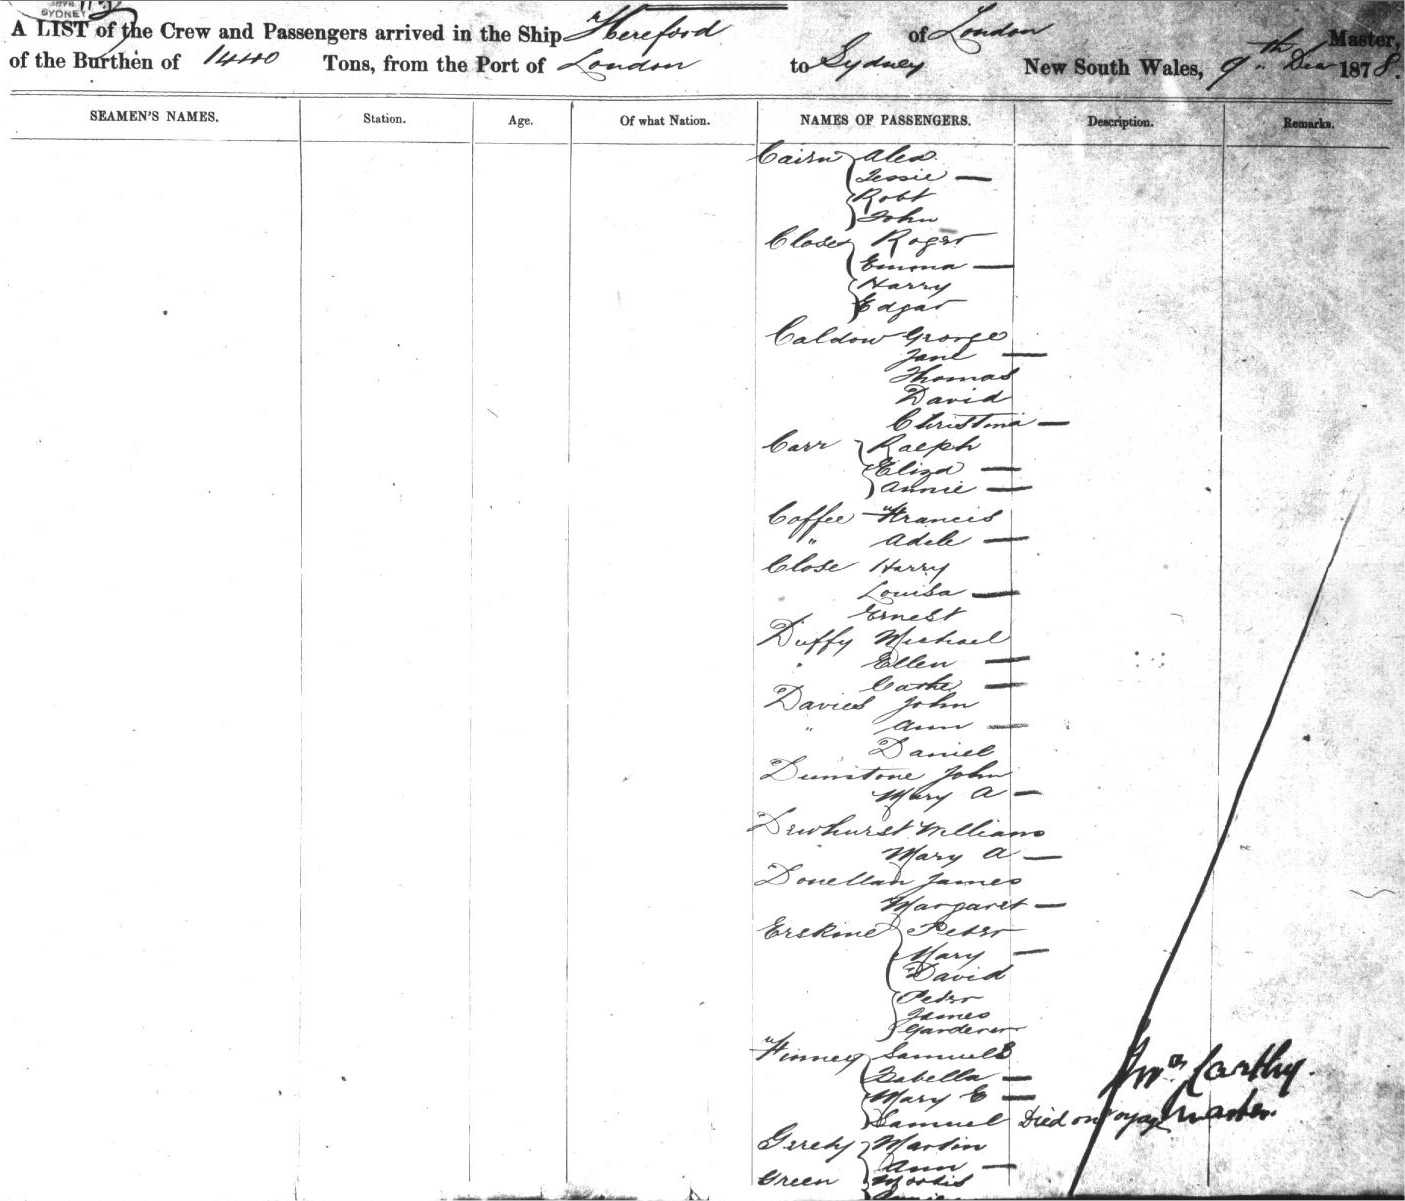 SYDNEY
A LIST of the Crew and Passengers arrived in the Ship Hereford of London Master,
of the Burthen of 1440 Tons, from the Port of London to Sydney New South Wales, 9th Dec 1878.
SEAMEN'S NAMES. Station. Age. Of what Nation. NAMES OF PASSENGERS. Description. Remarks.
Cairn Alex
Jessie —
Robt
John
Close Roger
Emma —
Harry
Edgar
Caldow George
Jane —
Thomas
David
Christina —
Carr Ralph
Eliza —
Annie —
Coffee Francis
" Adele —
Close Harry
Louisa —
Ernest
Duffy Michael
" Ellen —
Cathe —
Davies John
" Ann —
Daniel
Dunstone John
Mary A —
Dewhurst William
Mary A —
Donellan James
Margaret —
Erskine Peter
Mary —
David
Peter
James
Gardener
Finney Samuel B
Isabella —
Mary E —
Samuel Died on voyage
McCarthy.
Master.
Gerety Martin
Ann —
Green